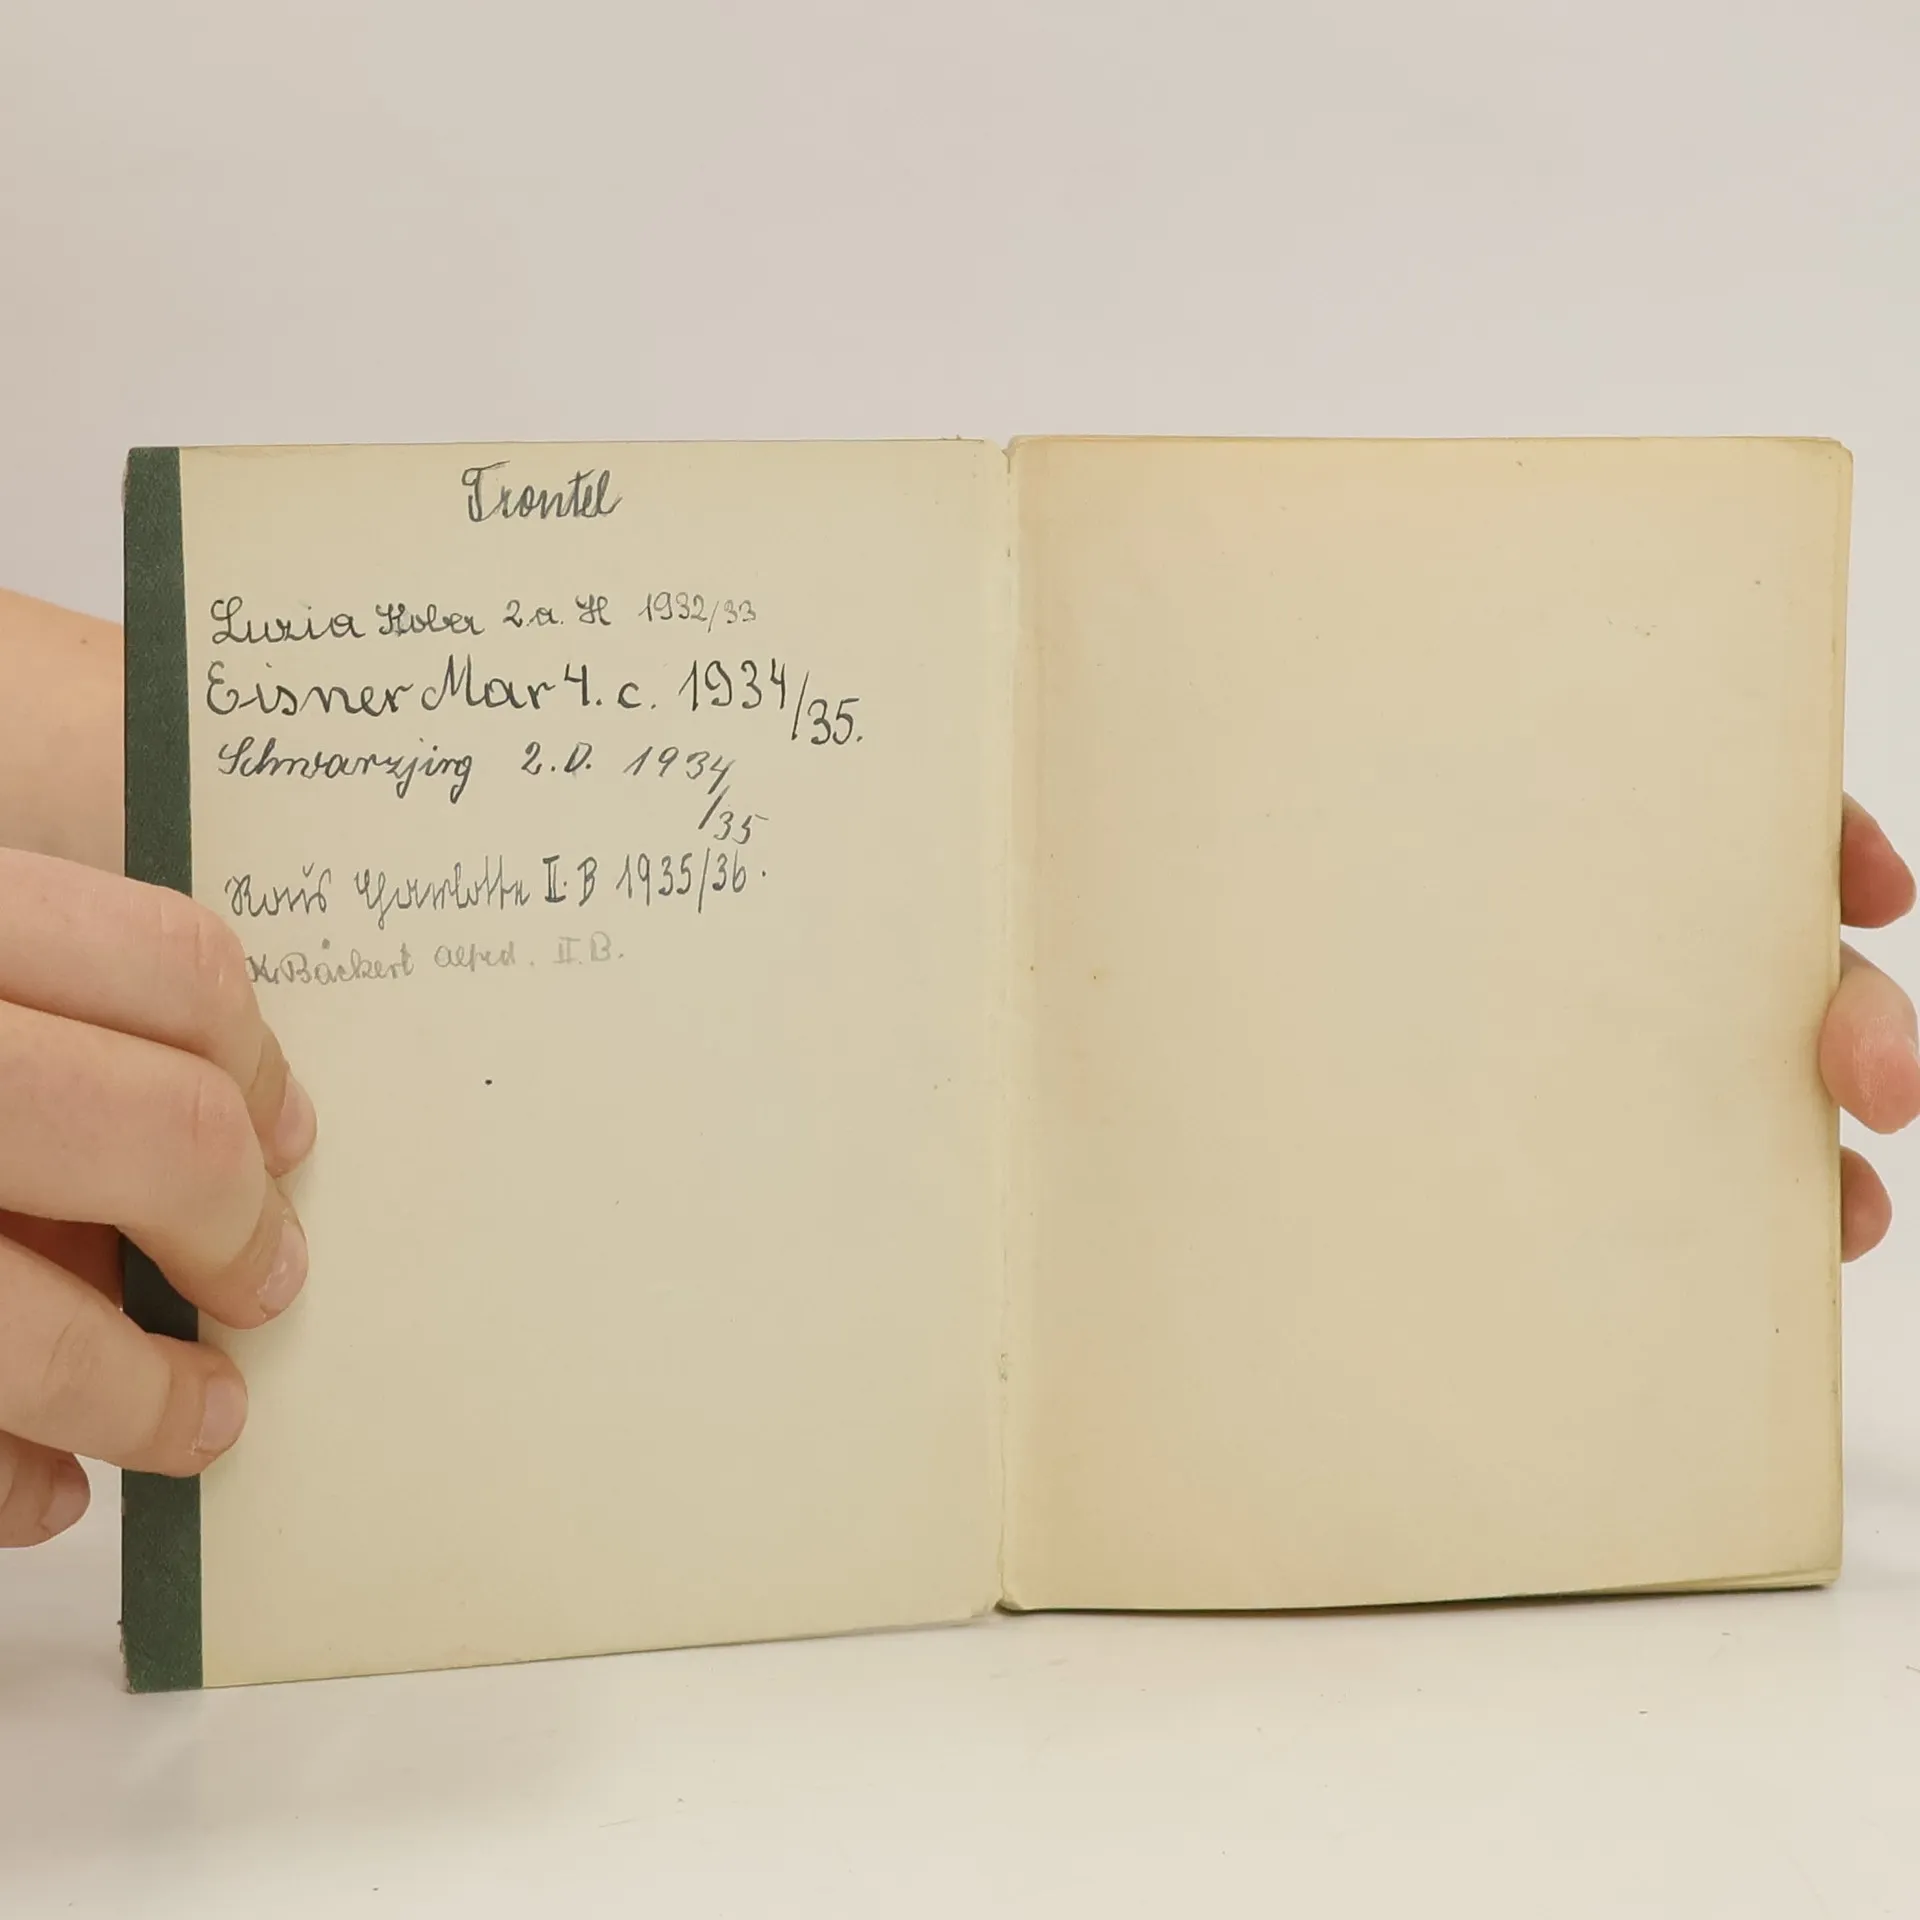 Trontel
Luzia Kober 2.a. H 1932/33
Eisner Mar 4. c. 1934/35.
Schwarzjirg 2. D. 1934
/35
Charlotte II. B 1935/36.
K. Bäckert Alfred. II. B.